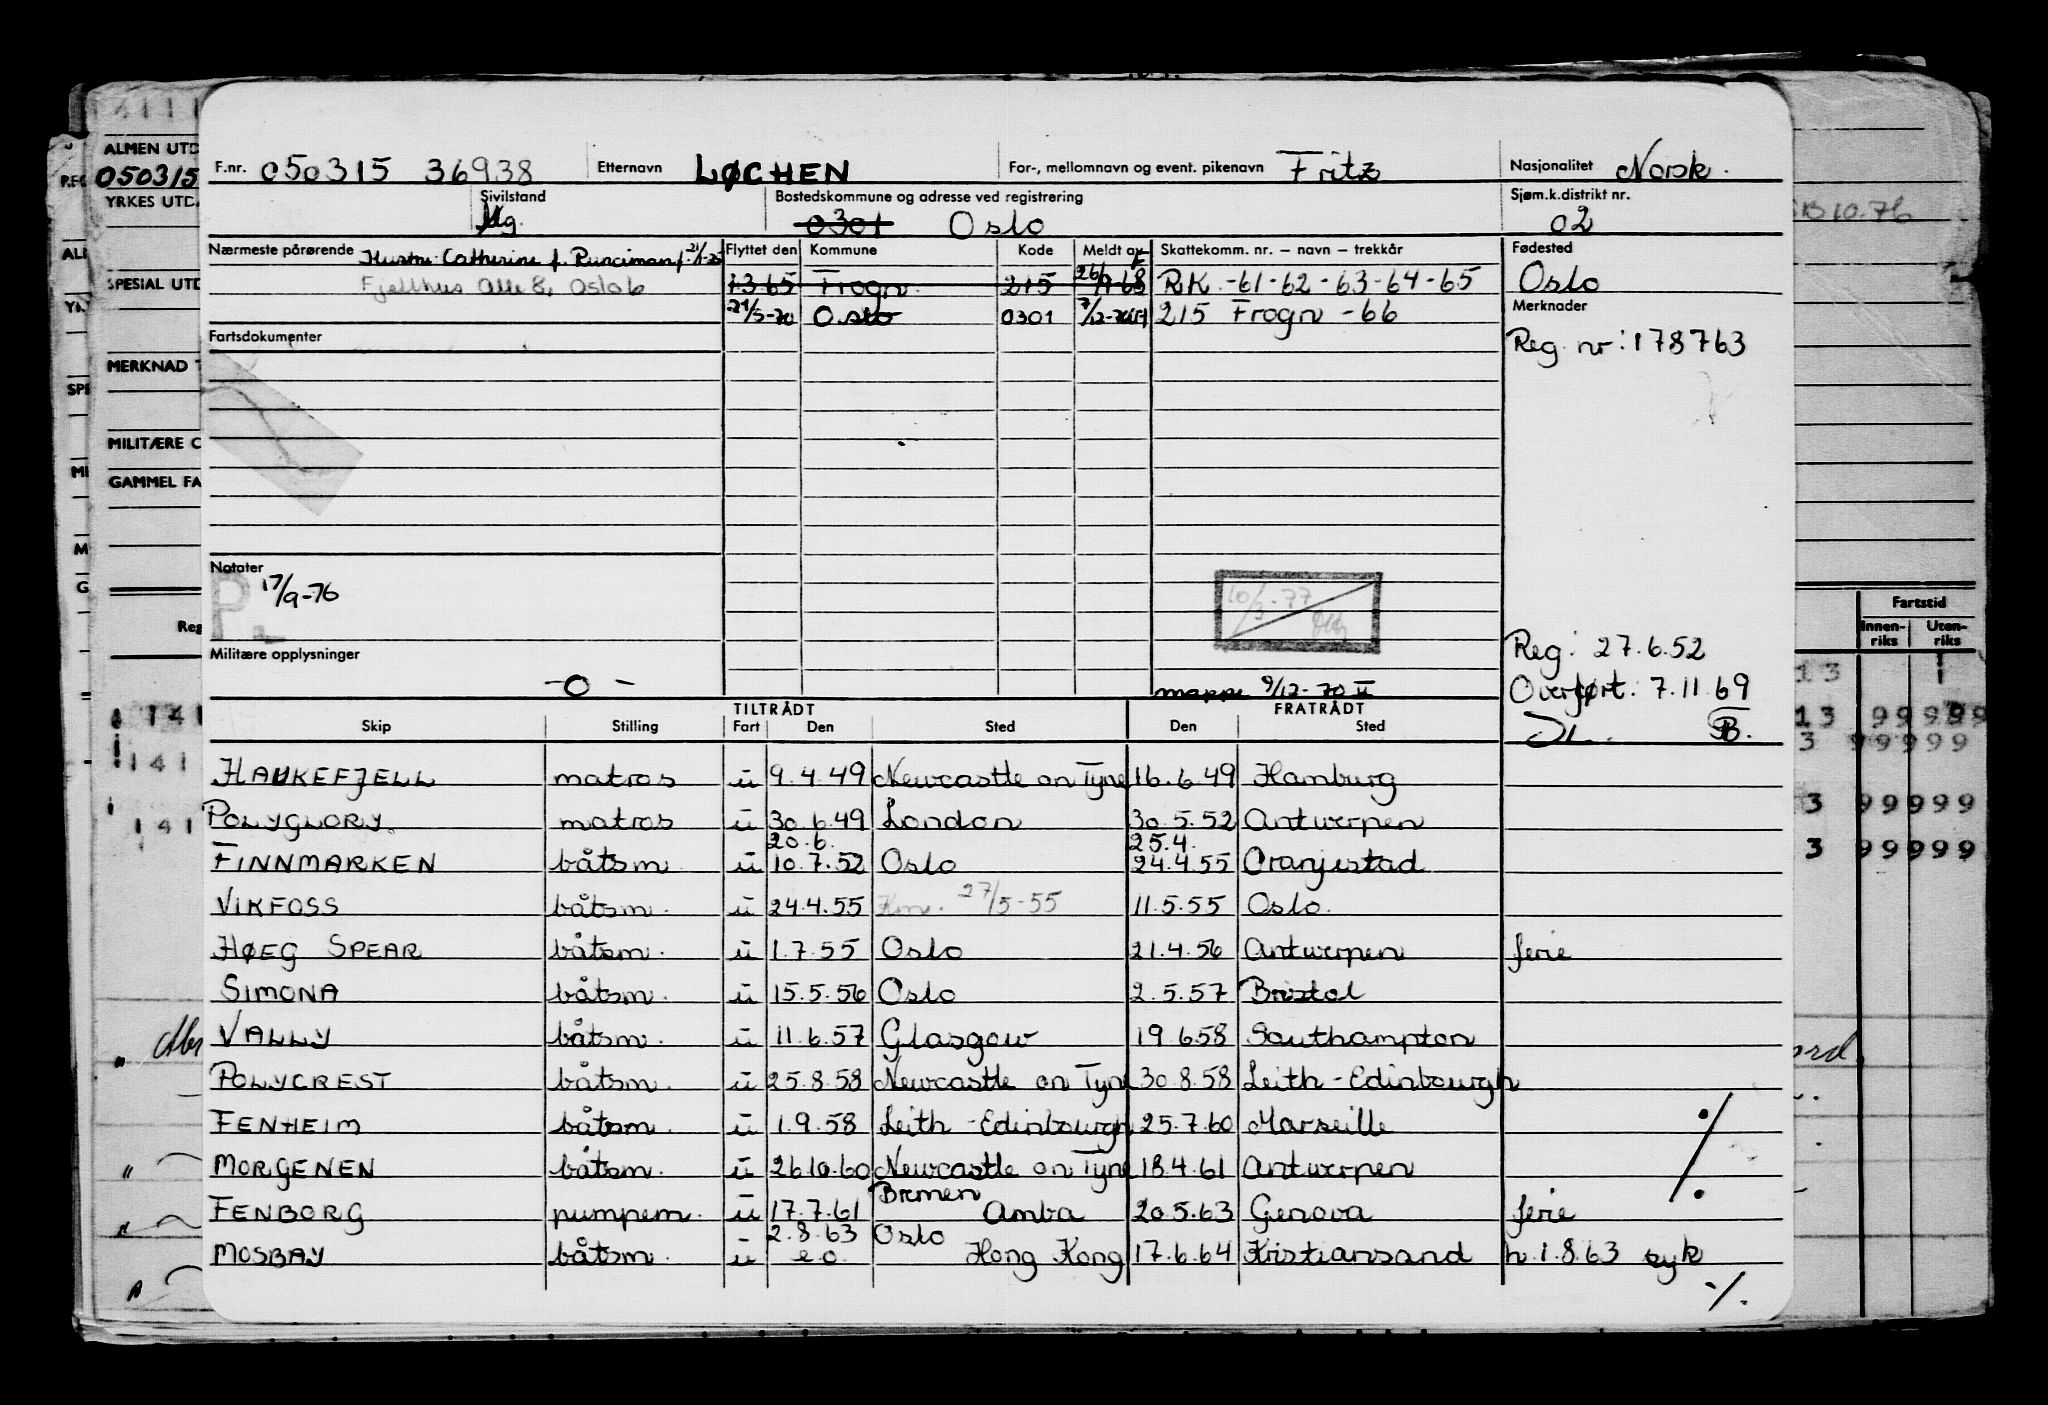 ALMEN UTD
050315
YRKES UTD
SPECIAL UTD
MERKNAD T
MILITÆRE O
GAMMEL FA
F.nr. 050315 36938 Etternavn LØCHEN For-, mellomnavn og event. pikenavn Fritz Nasjonalitet Norsk.
Sivilstand Ug. Bostedskommune og adresse ved registrering 0301 Oslo Sjøm.k.distrikt nr. 02
Nærmeste pårørende Hustru Catherine f. Runciman Flyttet den Kommune Kode Meldt av Skattekomm. nr. – navn – trekkår Fødested
Fjellhus Alle 8, Oslo 6 1365 Frogn 215 26/9 68 RK -61-62-63-64-65 Oslo
21/5-70 Oslo 0301 7/12-70 215 Frogn -66 Merknader
Fartsdokumenter Reg. nr: 178763
Notater
17/9-76
10/3-77
Reg: 27.6.52
Militære opplysninger
-0-
mappe 9/12-70 Overført: 7.11 69
TILTRÅDT FRATRÅDT
Skip Stilling Fart Den Sted Den Sted B.
HAUKEFJELL matros u 9.4.49 Newcastle on Tyne 16.6.49 Hamburg
POLYGLORY matros u 30.6.49 London 30.5.52 Antwerpen
20.6. 25.4.
FINNMARKEN båtsm u 10.7.52 Oslo 24.4.55 Oranjestad
VIKFOSS båtsm. u 24.4.55 27/5-55 11.5.55 Oslo.
HØEG SPEAR båtsm. u 1.7.55 Oslo 21.4.56 Antwerpen ferie
SIMONA båtsm. u 15.5.56 Oslo 2.5.57 Bristol
VALLY båtsm. u 11.6.57 Glasgow 19.658 Southampton
POLYCREST båtsm. u 25.8.58 Newcastle on Tyne 30.8.58 Leith-Edinbourgh
FENHEIM båtsm. u 1.9.58 Leith-Edinbourgh 25.7.60 Marseille
MORGENEN båtsm. u 26.10.60 Newcastle on Tyne 18.4.61 Antwerpen
Bremen
FENBORG pumpem. u 17.7.61 Amba 20.5.63 Genova ferie
2.8.63 Oslo
MOSBAY båtsm. u e.o. Hong Kong 17.6.64 Kristiansand h. 1.8.63 syk
·/.
B 10.76
Fartstid
Innen-riks Uten-riks